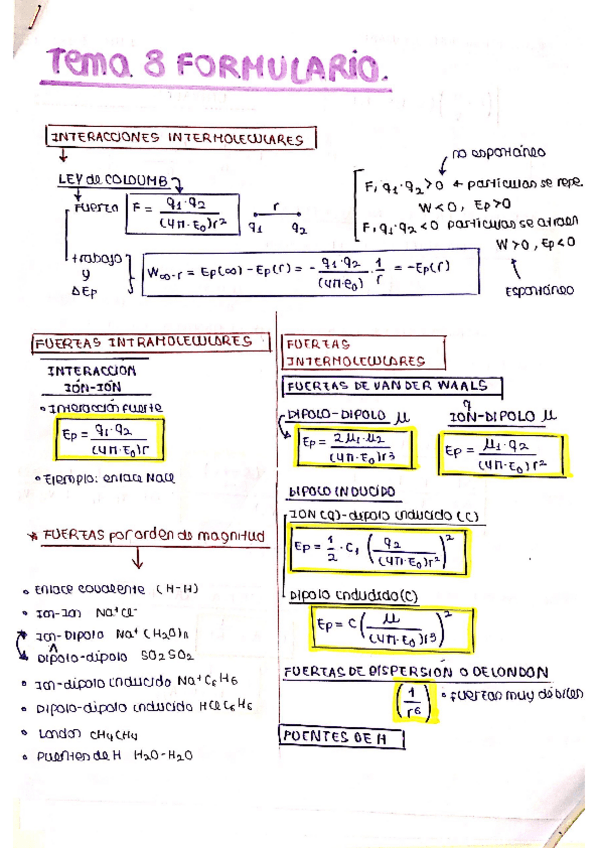 Tema 8 FORMULARIO.
INTERACCIONES INTERMOLECULARES
no espontáneo
LEY de COLOUMB
Fuerza F = q1·q2 / (4π·ε0)r²
r
q1 q2
F, q1·q2 > 0 → particulas se repe.
W < 0, Ep > 0
F, q1·q2 < 0 particulas se atraen
W > 0, Ep < 0
Espontáneo
trabajo
y
ΔEp
W∞-r = Ep(∞) - Ep(r) = - q1·q2 / (4π·ε0) · 1/r = -Ep(r)
FUERZAS INTRAMOLECULARES
INTERACCION
IÓN-IÓN
• Interacción fuerte
Ep = q1·q2 / (4π·ε0)r
• Ejemplo: enlace NaCl
* FUERZAS por orden de magnitud
• Enlace covalente (H-H)
• Ion-Ion Na⁺Cl⁻
• Ion-Dipolo Na⁺ (H2O)n
• Dipolo-dipolo SO2 SO2
• Ion-dipolo inducido Na⁺C6H6
• Dipolo-dipolo inducido HCl C6H6
• London CH4 CH4
• Puentes de H H2O-H2O
FUERZAS
INTERMOLECULARES
FUERZAS DE VAN DER WAALS
DIPOLO-DIPOLO μ
Ep = 2μ1·μ2 / (4π·ε0)r³
q
ION-DIPOLO μ
Ep = μ1·q2 / (4π·ε0)r²
DIPOLO INDUCIDO
ION (q)-dipolo inducido (C)
Ep = 1/2 · C1 (q2 / (4π·ε0)r²)²
Dipolo inducido (C)
Ep = C (μ / (4π·ε0)r³)²
FUERZAS DE DISPERSIÓN O DE LONDON
(1/r⁶) • fuerzas muy débiles
PUENTES DE H